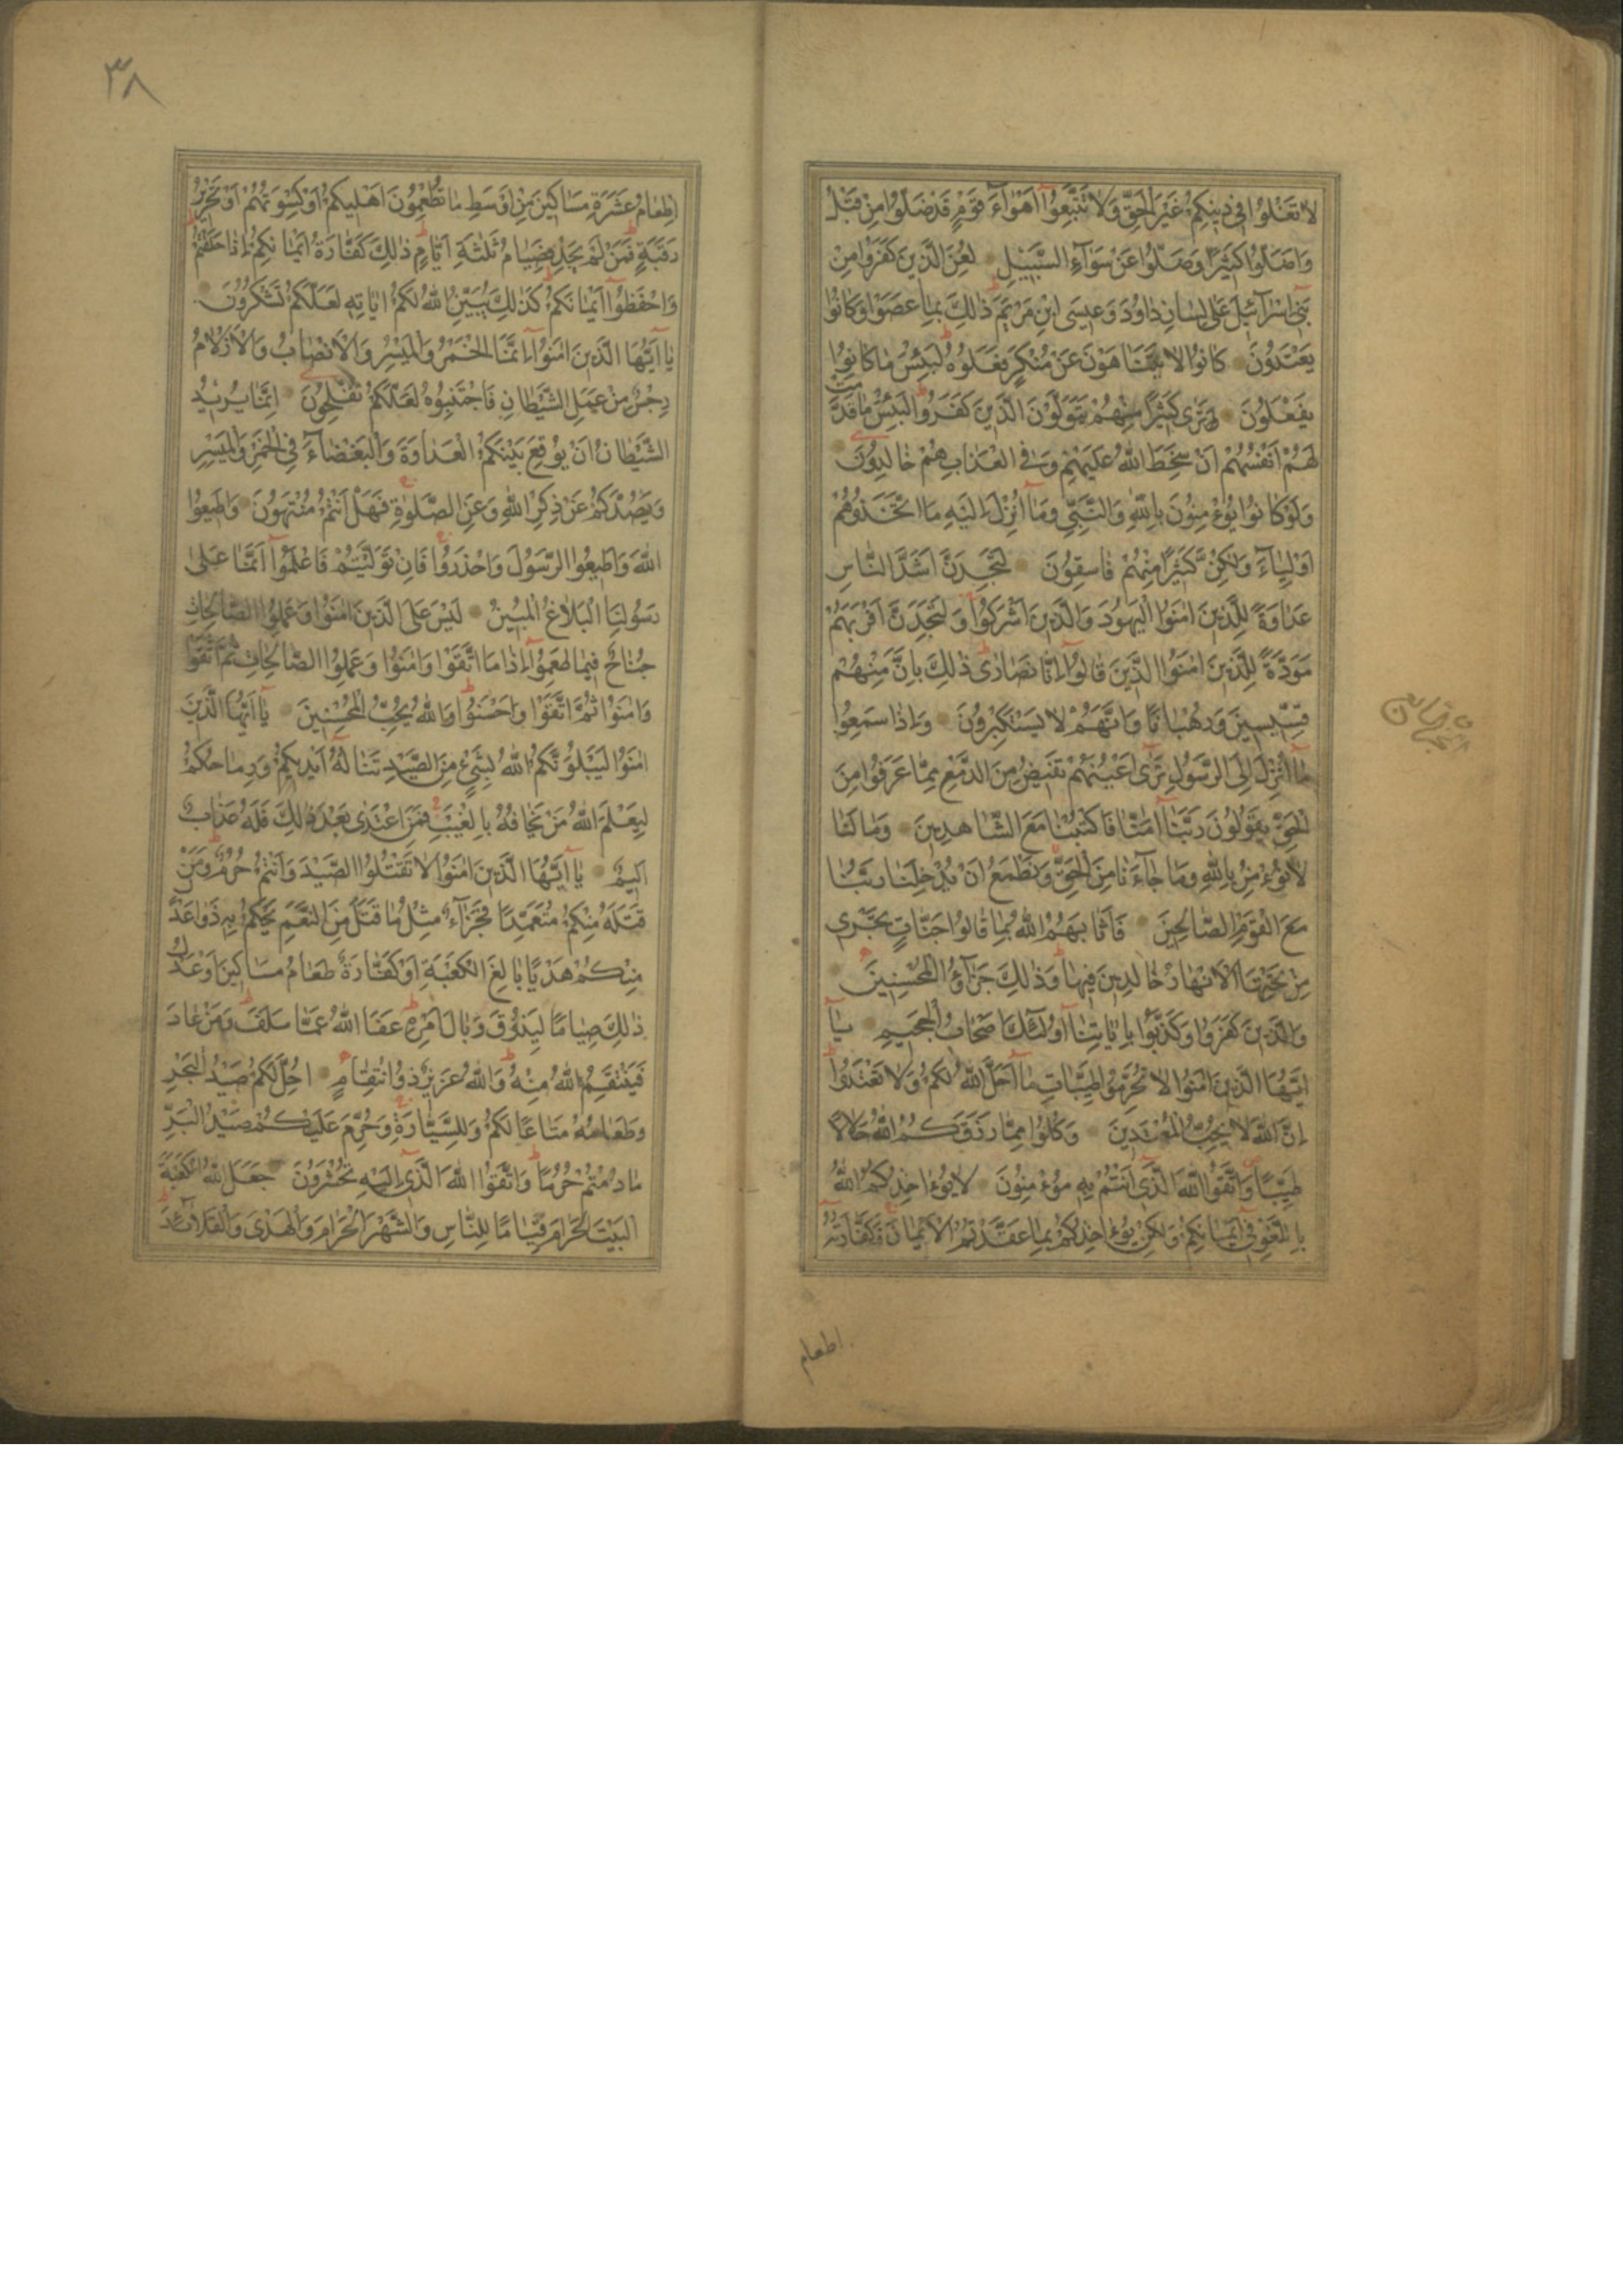 لَا تَغْلُوا فِي دِينِكُمْ غَيْرَ الْحَقِّ وَلَا تَتَّبِعُوا أَهْوَاءَ قَوْمٍ قَدْ ضَلُّوا مِنْ قَبْلُ
وَاَضَلُّوا كَثِيرًا وَضَلُّوا عَنْ سَوَآءِ السَّبِيلِ لُعِنَ الَّذِينَ كَفَرُوا مِنْ
بَنِى اِسْرَآئِيلَ عَلَى لِسَانِ دَاوُدَ وَعِيسَى ابْنِ مَرْيَمَ ذٰلِكَ بِمَا عَصَوْا وَكَانُوا
يَعْتَدُونَ كَانُوا لَا يَتَنَاهَوْنَ عَنْ مُنْكَرٍ فَعَلُوهُ لَبِئْسَ مَا كَانُوا
يَفْعَلُونَ تَرٰى كَثِيرًا مِنْهُمْ يَتَوَلَّوْنَ الَّذِينَ كَفَرُوا لَبِئْسَ مَا قَدَّمَتْ
لَهُمْ اَنْفُسُهُمْ اَنْ سَخِطَ اللّٰهُ عَلَيْهِمْ وَفِى الْعَذَابِ هُمْ خَالِدُونَ
وَلَوْ كَانُوا يُؤْمِنُونَ بِاللّٰهِ وَالنَّبِىِّ وَمَا اُنْزِلَ اِلَيْهِ مَا اتَّخَذُوهُمْ
اَوْلِيَآءَ وَلٰكِنَّ كَثِيرًا مِنْهُمْ فَاسِقُونَ لَتَجِدَنَّ اَشَدَّ النَّاسِ
عَدَاوَةً لِلَّذِينَ اٰمَنُوا الْيَهُودَ وَالَّذِينَ اَشْرَكُوا وَلَتَجِدَنَّ اَقْرَبَهُمْ
مَوَدَّةً لِلَّذِينَ اٰمَنُوا الَّذِينَ قَالُوا اِنَّا نَصَارٰى ذٰلِكَ بِاَنَّ مِنْهُمْ
قِسِّيسِينَ وَرُهْبَانًا وَاَنَّهُمْ لَا يَسْتَكْبِرُونَ وَاِذَا سَمِعُوا
مَا اُنْزِلَ اِلَى الرَّسُولِ تَرٰى اَعْيُنَهُمْ تَفِيضُ مِنَ الدَّمْعِ مِمَّا عَرَفُوا مِنَ
الْحَقِّ يَقُولُونَ رَبَّنَا اٰمَنَّا فَاكْتُبْنَا مَعَ الشَّاهِدِينَ وَمَا لَنَا
لَا نُؤْمِنُ بِاللّٰهِ وَمَا جَآءَنَا مِنَ الْحَقِّ وَنَطْمَعُ اَنْ يُدْخِلَنَا رَبُّنَا
مَعَ الْقَوْمِ الصَّالِحِينَ فَاَثَابَهُمُ اللّٰهُ بِمَا قَالُوا جَنَّاتٍ تَجْرِى
مِنْ تَحْتِهَا الْاَنْهَارُ خَالِدِينَ فِيهَا وَذٰلِكَ جَزَآؤُ الْمُحْسِنِينَ
وَالَّذِينَ كَفَرُوا وَكَذَّبُوا بِاٰيَاتِنَا اُولٰٓئِكَ اَصْحَابُ الْجَحِيمِ يَآ
اَيُّهَا الَّذِينَ اٰمَنُوا لَا تُحَرِّمُوا طَيِّبَاتِ مَا اَحَلَّ اللّٰهُ لَكُمْ وَلَا تَعْتَدُوا
اِنَّ اللّٰهَ لَا يُحِبُّ الْمُعْتَدِينَ وَكُلُوا مِمَّا رَزَقَكُمُ اللّٰهُ حَلَالًا
طَيِّبًا وَاتَّقُوا اللّٰهَ الَّذِى اَنْتُمْ بِهِ مُؤْمِنُونَ لَا يُؤَاخِذُكُمُ اللّٰهُ
بِاللَّغْوِ فِى اَيْمَانِكُمْ وَلٰكِنْ يُؤَاخِذُكُمْ بِمَا عَقَّدْتُمُ الْاَيْمَانَ فَكَفَّارَتُهُ
اطعام
٣٨
اِطْعَامُ عَشَرَةِ مَسَاكِينَ مِنْ اَوْسَطِ مَا تُطْعِمُونَ اَهْلِيكُمْ اَوْ كِسْوَتُهُمْ اَوْ تَحْرِيرُ
رَقَبَةٍ فَمَنْ لَمْ يَجِدْ فَصِيَامُ ثَلٰثَةِ اَيَّامٍ ذٰلِكَ كَفَّارَةُ اَيْمَانِكُمْ اِذَا حَلَفْتُمْ
وَاحْفَظُوا اَيْمَانَكُمْ كَذٰلِكَ يُبَيِّنُ اللّٰهُ لَكُمْ اٰيَاتِهِ لَعَلَّكُمْ تَشْكُرُونَ
يَآ اَيُّهَا الَّذِينَ اٰمَنُوا اِنَّمَا الْخَمْرُ وَالْمَيْسِرُ وَالْاَنْصَابُ وَالْاَزْلَامُ
رِجْسٌ مِنْ عَمَلِ الشَّيْطَانِ فَاجْتَنِبُوهُ لَعَلَّكُمْ تُفْلِحُونَ اِنَّمَا يُرِيدُ
الشَّيْطَانُ اَنْ يُوقِعَ بَيْنَكُمُ الْعَدَاوَةَ وَالْبَغْضَآءَ فِى الْخَمْرِ وَالْمَيْسِرِ
وَيَصُدَّكُمْ عَنْ ذِكْرِ اللّٰهِ وَعَنِ الصَّلٰوةِ فَهَلْ اَنْتُمْ مُنْتَهُونَ وَاَطِيعُوا
اللّٰهَ وَاَطِيعُوا الرَّسُولَ وَاحْذَرُوا فَاِنْ تَوَلَّيْتُمْ فَاعْلَمُوا اَنَّمَا عَلٰى
رَسُولِنَا الْبَلَاغُ الْمُبِينُ لَيْسَ عَلَى الَّذِينَ اٰمَنُوا وَعَمِلُوا الصَّالِحَاتِ
جُنَاحٌ فِيمَا طَعِمُوا اِذَا مَا اتَّقَوْا وَاٰمَنُوا وَعَمِلُوا الصَّالِحَاتِ ثُمَّ اتَّقَوْا
وَاٰمَنُوا ثُمَّ اتَّقَوْا وَاَحْسَنُوا وَاللّٰهُ يُحِبُّ الْمُحْسِنِينَ يَآ اَيُّهَا الَّذِينَ
اٰمَنُوا لَيَبْلُوَنَّكُمُ اللّٰهُ بِشَىْءٍ مِنَ الصَّيْدِ تَنَالُهُ اَيْدِيكُمْ وَرِمَاحُكُمْ
لِيَعْلَمَ اللّٰهُ مَنْ يَخَافُهُ بِالْغَيْبِ فَمَنِ اعْتَدٰى بَعْدَ ذٰلِكَ فَلَهُ عَذَابٌ
اَلِيمٌ يَآ اَيُّهَا الَّذِينَ اٰمَنُوا لَا تَقْتُلُوا الصَّيْدَ وَاَنْتُمْ حُرُمٌ وَمَنْ
قَتَلَهُ مِنْكُمْ مُتَعَمِّدًا فَجَزَآءٌ مِثْلُ مَا قَتَلَ مِنَ النَّعَمِ يَحْكُمُ بِهِ ذَوَا عَدْلٍ
مِنْكُمْ هَدْيًا بَالِغَ الْكَعْبَةِ اَوْ كَفَّارَةٌ طَعَامُ مَسَاكِينَ اَوْ عَدْلُ
ذٰلِكَ صِيَامًا لِيَذُوقَ وَبَالَ اَمْرِهِ عَفَا اللّٰهُ عَمَّا سَلَفَ وَمَنْ عَادَ
فَيَنْتَقِمُ اللّٰهُ مِنْهُ وَاللّٰهُ عَزِيزٌ ذُو انْتِقَامٍ اُحِلَّ لَكُمْ صَيْدُ الْبَحْرِ
وَطَعَامُهُ مَتَاعًا لَكُمْ وَلِلسَّيَّارَةِ وَحُرِّمَ عَلَيْكُمْ صَيْدُ الْبَرِّ
مَا دُمْتُمْ حُرُمًا وَاتَّقُوا اللّٰهَ الَّذِى اِلَيْهِ تُحْشَرُونَ جَعَلَ اللّٰهُ الْكَعْبَةَ
الْبَيْتَ الْحَرَامَ قِيَامًا لِلنَّاسِ وَالشَّهْرَ الْحَرَامَ وَالْهَدْىَ وَالْقَلَآئِدَ